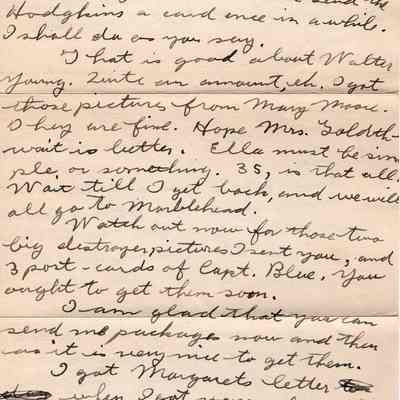 send the
Hodgkins a card once in a while.
I shall do as you say.
That is good about Walter
Young. Quite an amount, eh. I got
those pictures from Mary Moore.
They are fine. Hope Mrs. Goldth-
wait is better. Ella must be sim
ple, or something. 35, is that all.
Wait till I get back, and we will
all go to Marblehead.
Watch out now for those two
big destroyer pictures I sent you, and
3 post-cards of Capt. Blue. You
ought to get them soon.
I am glad that you can
send me packages now and then
as it is very nice to get them.
I got Margarets letter to
when I got